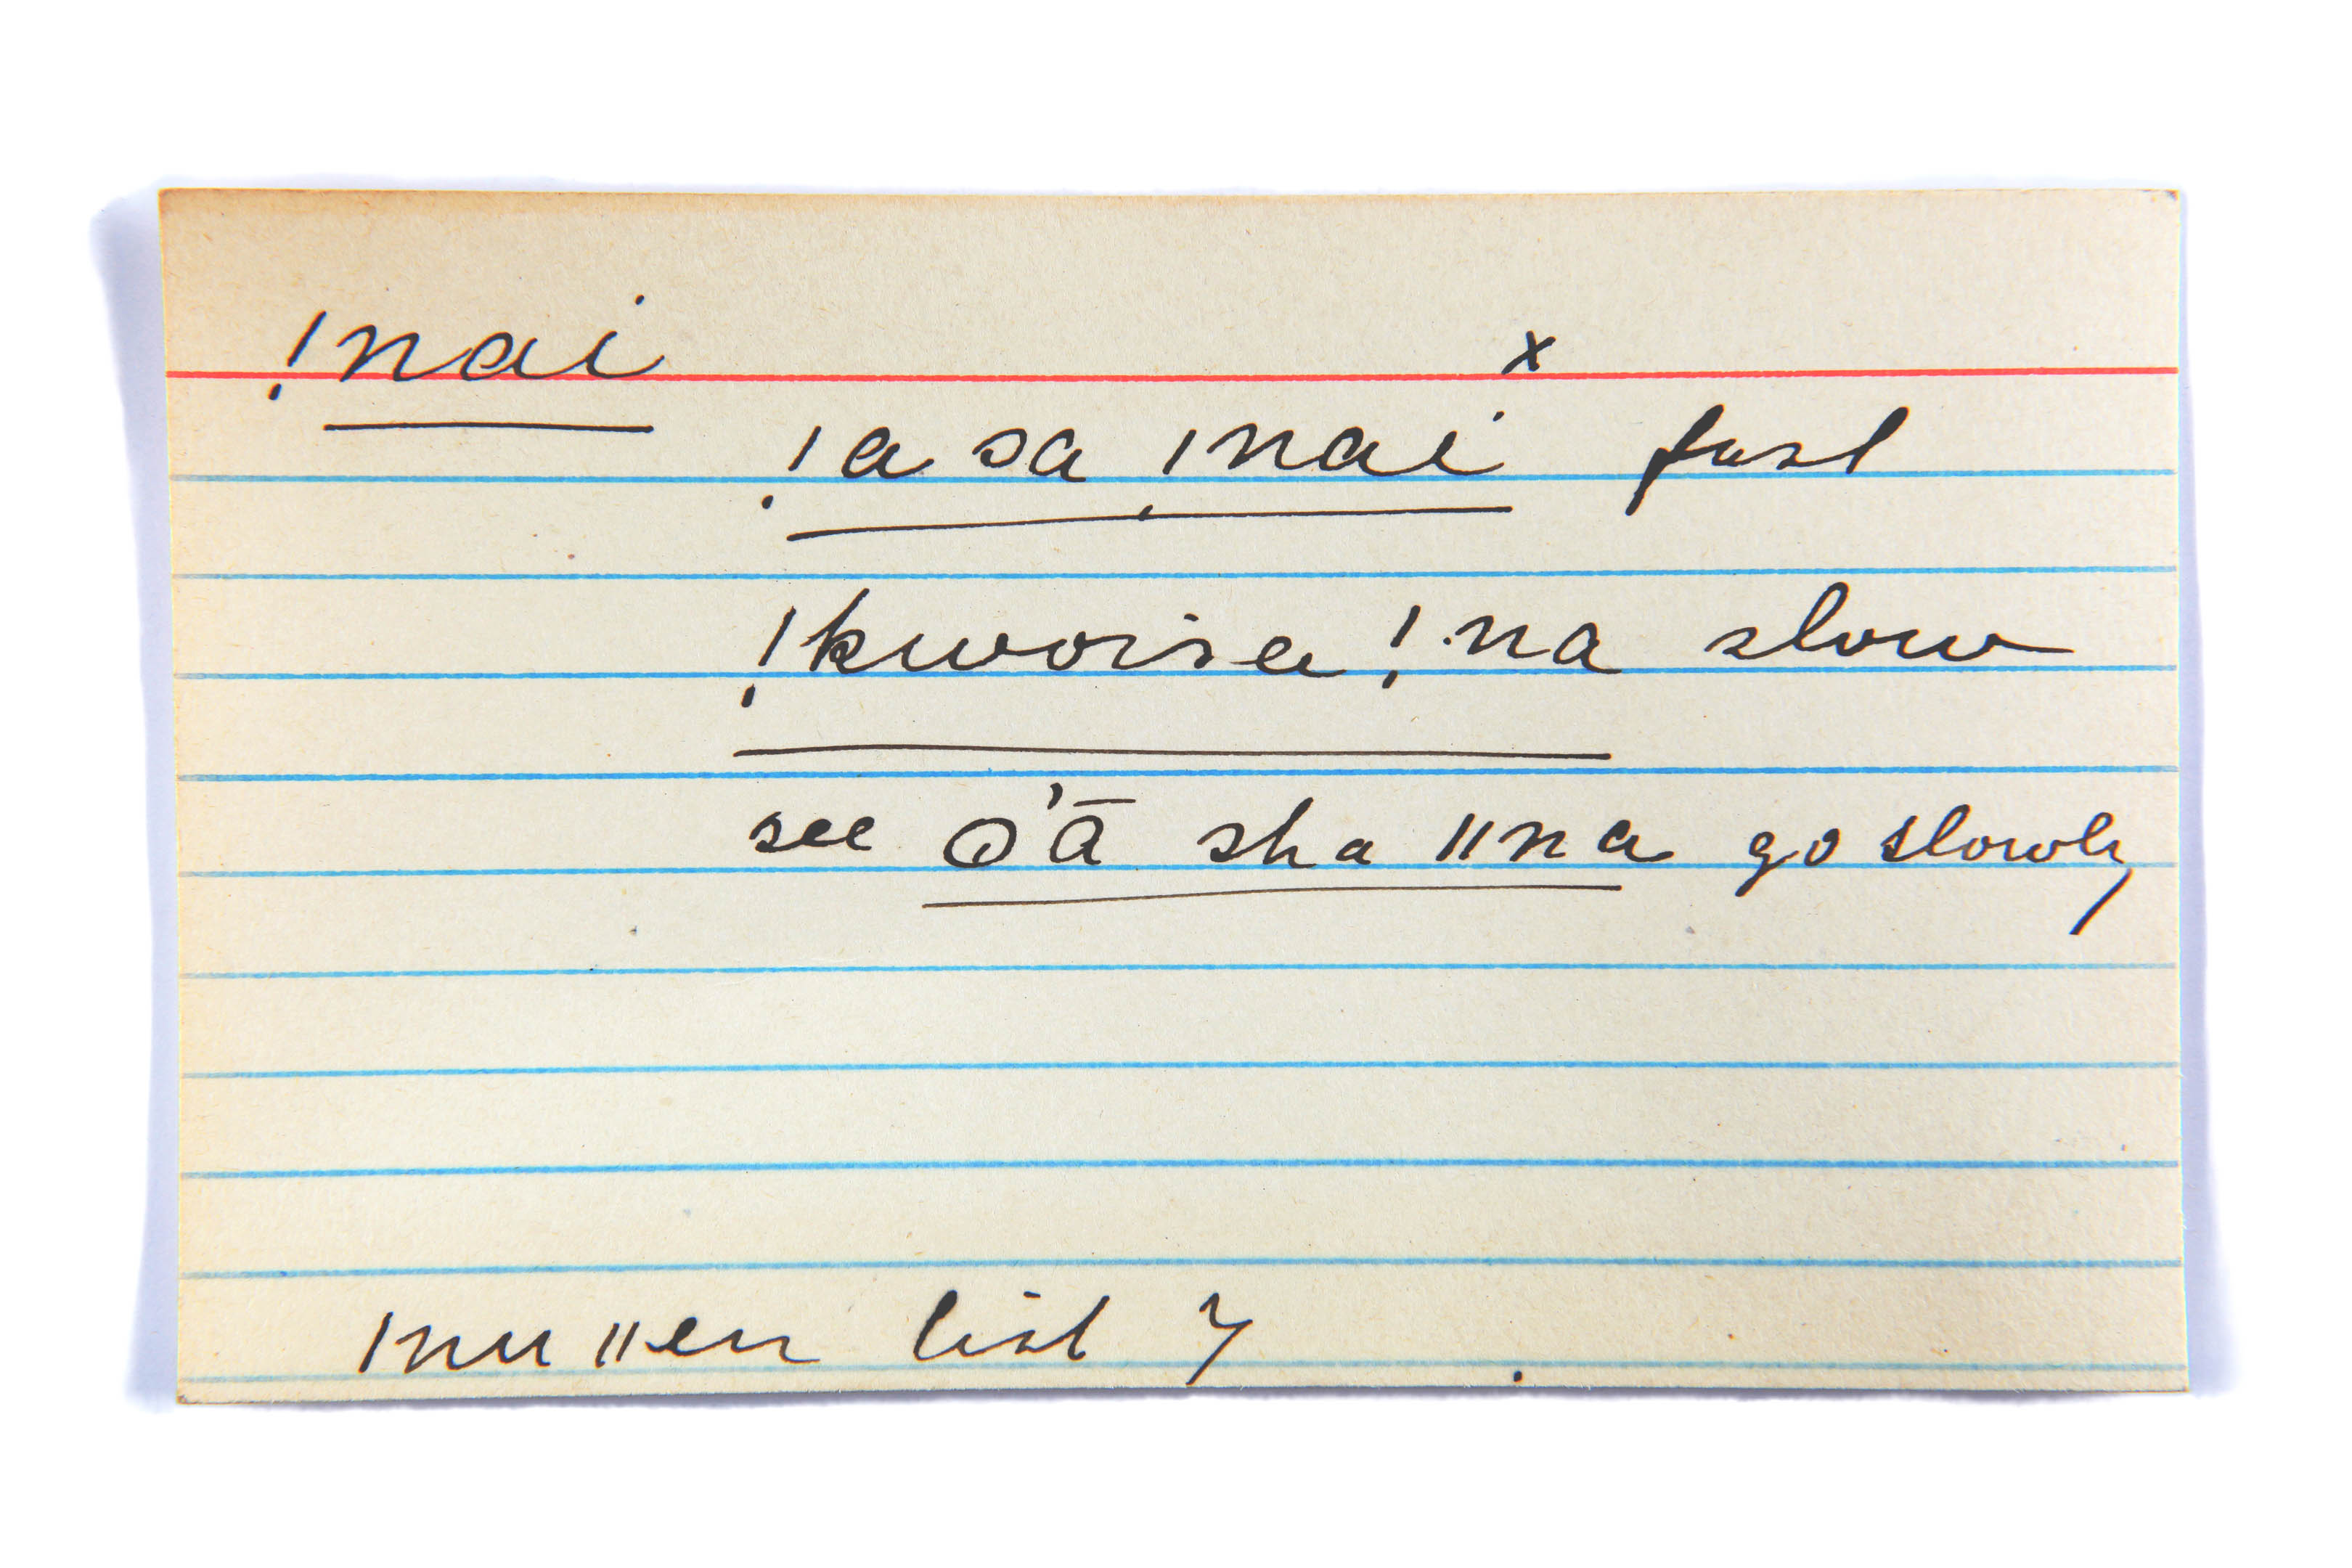 !nai
x
!a sa !nai fast
!kwoisa !na slow
see o'ā sha ǁna go slowly
ǀnu ǁen list 7